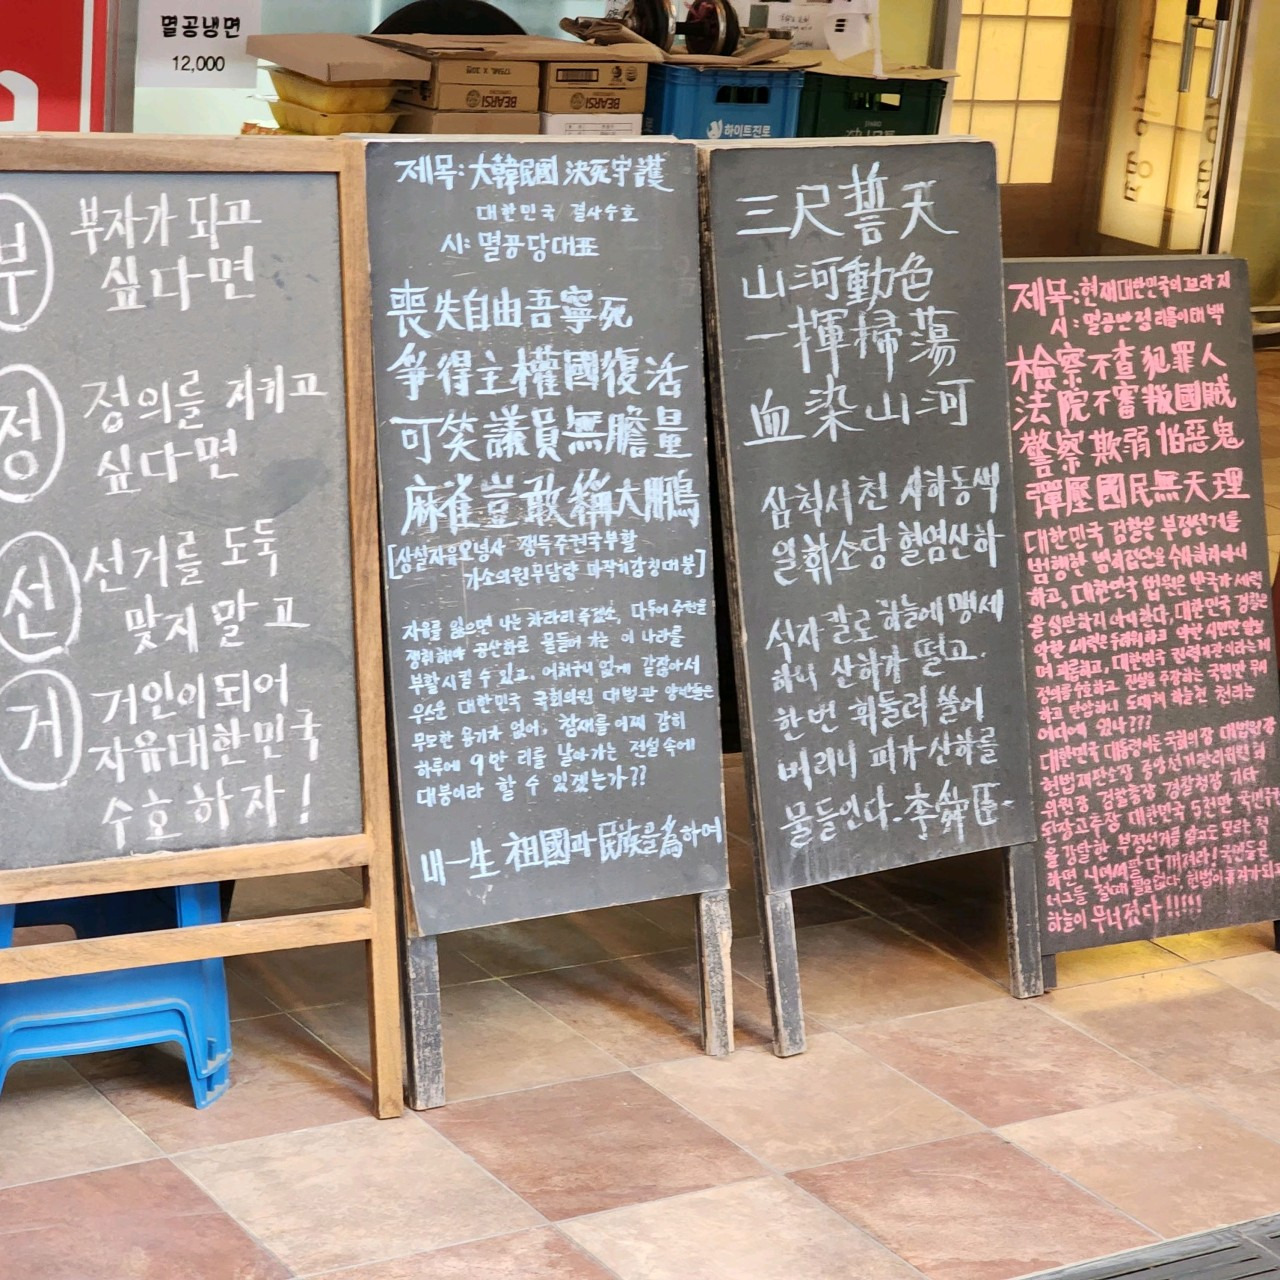 멸공냉면
12,000
175ML X 30
BEARSI
BEARSI
하이트진로
부
부자가 되고
싶다면
정
정의를 지키고
싶다면
선
선거를 도둑
맞지 말고
거
거인이 되어
자유대한민국
수호하자!
제목: 大韓民國 決死守護
대한민국 결사수호
시: 멸공당대표
喪失自由吾寧死
爭得主權國復活
可笑議員無膽量
麻雀豈敢稱大鵬
[상실자유오녕사 쟁득주권국부활
가소의원무담량 마작기감칭대붕]
자유를 잃으면 나는 차라리 죽겠소, 다투어 주권을
쟁취해야 공산화로 물들어 가는 이 나라를
부활시킬 수 있고, 어처구니 없게 같잖아서
우스운 대한민국 국회의원 대법관 양반들은
무모한 용기가 없어, 참새를 어찌 감히
하루에 9만 리를 날아가는 전설 속에
대붕이라 할 수 있겠는가??
내一生 祖國과 民族을 為하여
三尺誓天
山河動色
一揮掃蕩
血染山河
삼척서천 산하동색
일휘소탕 혈염산하
석자 칼로 하늘에 맹세
하니 산하가 떨고.
한번 휘둘러 쓸어
버리니 피가 산하를
물들인다. 李舜臣.
제목: 현재대한민국의 꼬라지
시: 멸공반점 리틀이태백
檢察不查犯罪人
法院不審叛國賊
警察欺弱怕惡鬼
彈壓國民無天理
대한민국 검찰은 부정선거를
범행한 범죄집단을 수사하지아니
하고, 대한민국 법원은 반국가 세력
을 심판하지 아니한다, 대한민국 경찰은
악한 세력은 두려워하고 약한 시민만
며 괴롭히고, 대한민국 권력기관이라는게
정의를 수호하고 진실을 주장하는 국민만 무시
하고 탄압하니 도대체 하늘천 천리는
어디에 있나???
대한민국 대통령이든 국회의장 대법원장
헌법재판소장 중앙선거관리위원회
위원장 검찰총장 경찰청장 기타
된장고추장 대한민국 5천만 국민주권
을 강탈한 부정선거를 알고도 모르는 척
하면 니네새끼들 다 꺼져라! 국민들은
너그들 절대 필요없다. 헌법이 붕괴가 되고
하늘이 무너졌다!!!!!